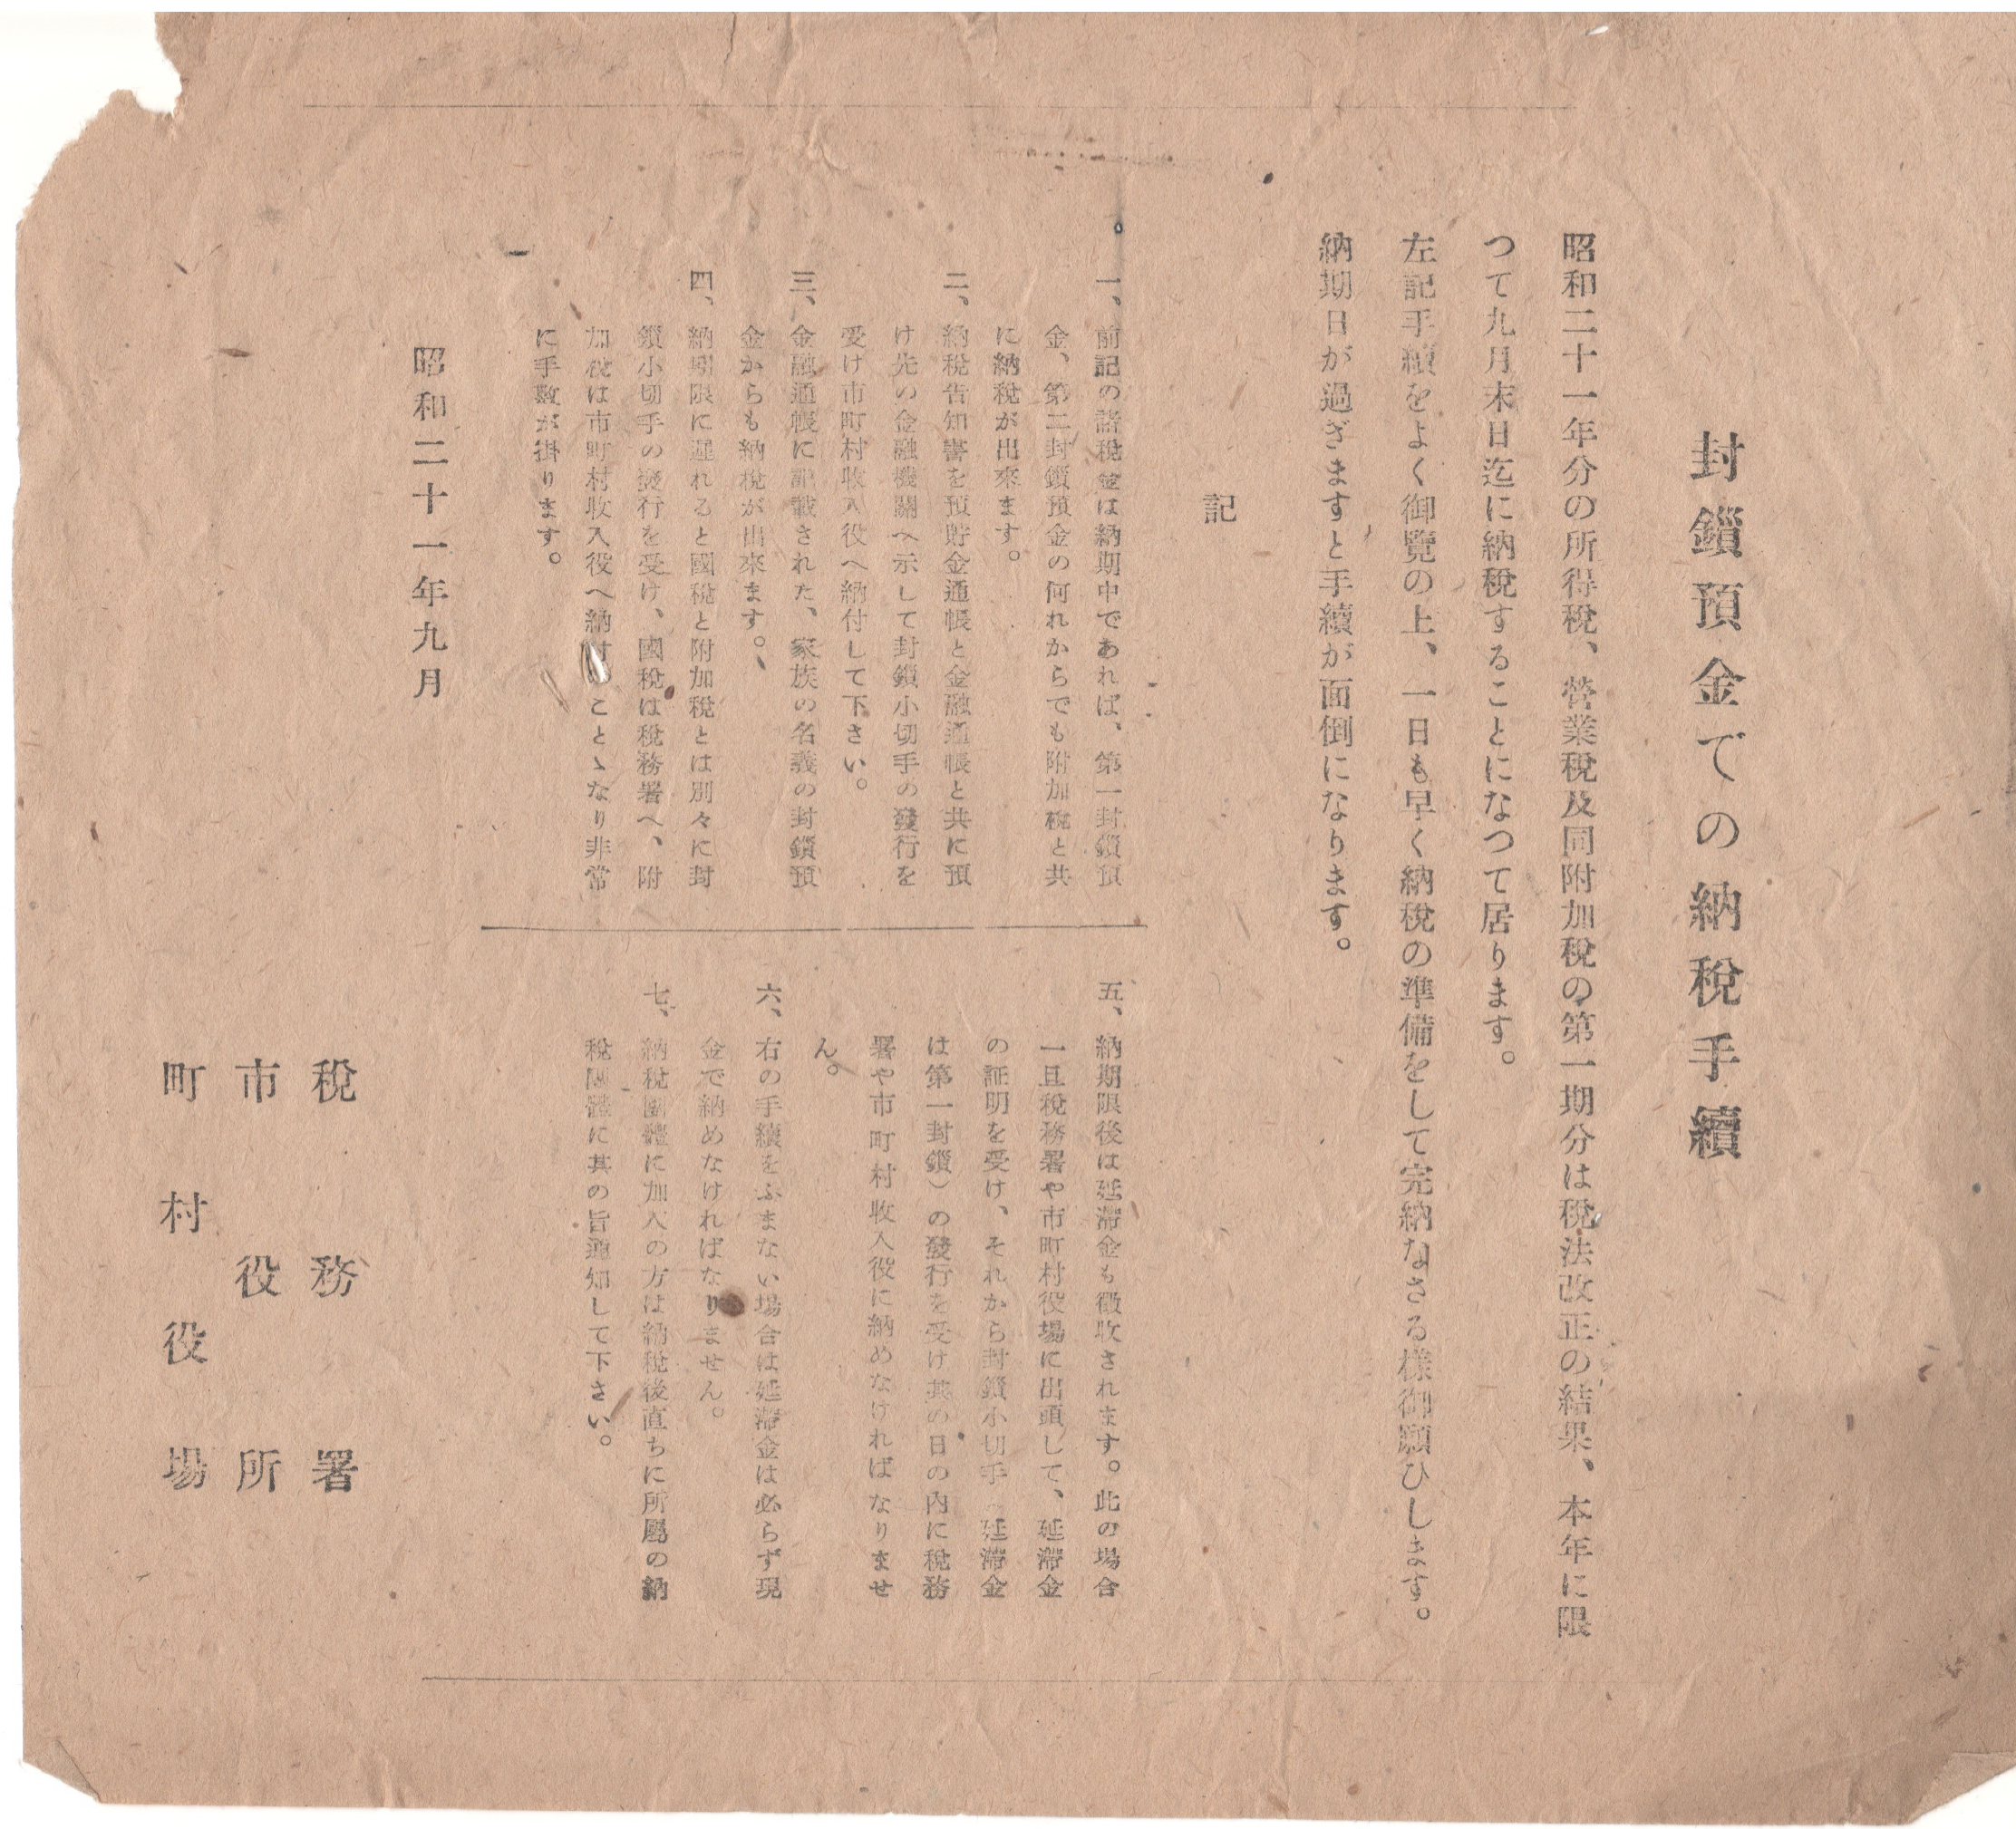 封鎖預金での納税手續
昭和二十一年分の所得税、營業税及同附加税の第一期分は税法改正の結果、本年に限
つて九月末日迄に納税することになつて居ります。
左記手續をよく御覽の上、一日も早く納税の準備をして完納なさる様御願ひします。
納期日が過ぎますと手續が面倒になります。
記
一、前記の諸税金は納期中であれば、第一封鎖預
金、第二封鎖預金の何れからでも附加税と共
に納税が出來ます。
二、納税告知書を預貯金通帳と金融通帳と共に預
け先の金融機關へ示して封鎖小切手の發行を
受け市町村收入役へ納付して下さい。
三、金融通帳に記載された、家族の名義の封鎖預
金からも納税が出來ます。
四、納期限に遲れると國税と附加税とは別々に封
鎖小切手の發行を受け、國税は税務署へ、附
加税は市町村收入役へ納付のことゝなり非常
に手數が掛ります。
五、納期限後は延滯金も徴收されます。此の場合
一旦税務署や市町村役場に出頭して、延滯金
の証明を受け、それから封鎖小切手（延滯金
は第一封鎖）の發行を受け其の日の内に税務
署や市町村收入役に納めなければなりませ
ん。
六、右の手續をふまない場合は延滯金は必らず現
金で納めなければなりません。
七、納税團體に加入の方は納税後直ちに所屬の納
税團體に其の旨通知して下さい。
昭和二十一年九月
税務署
市役所
町村役場